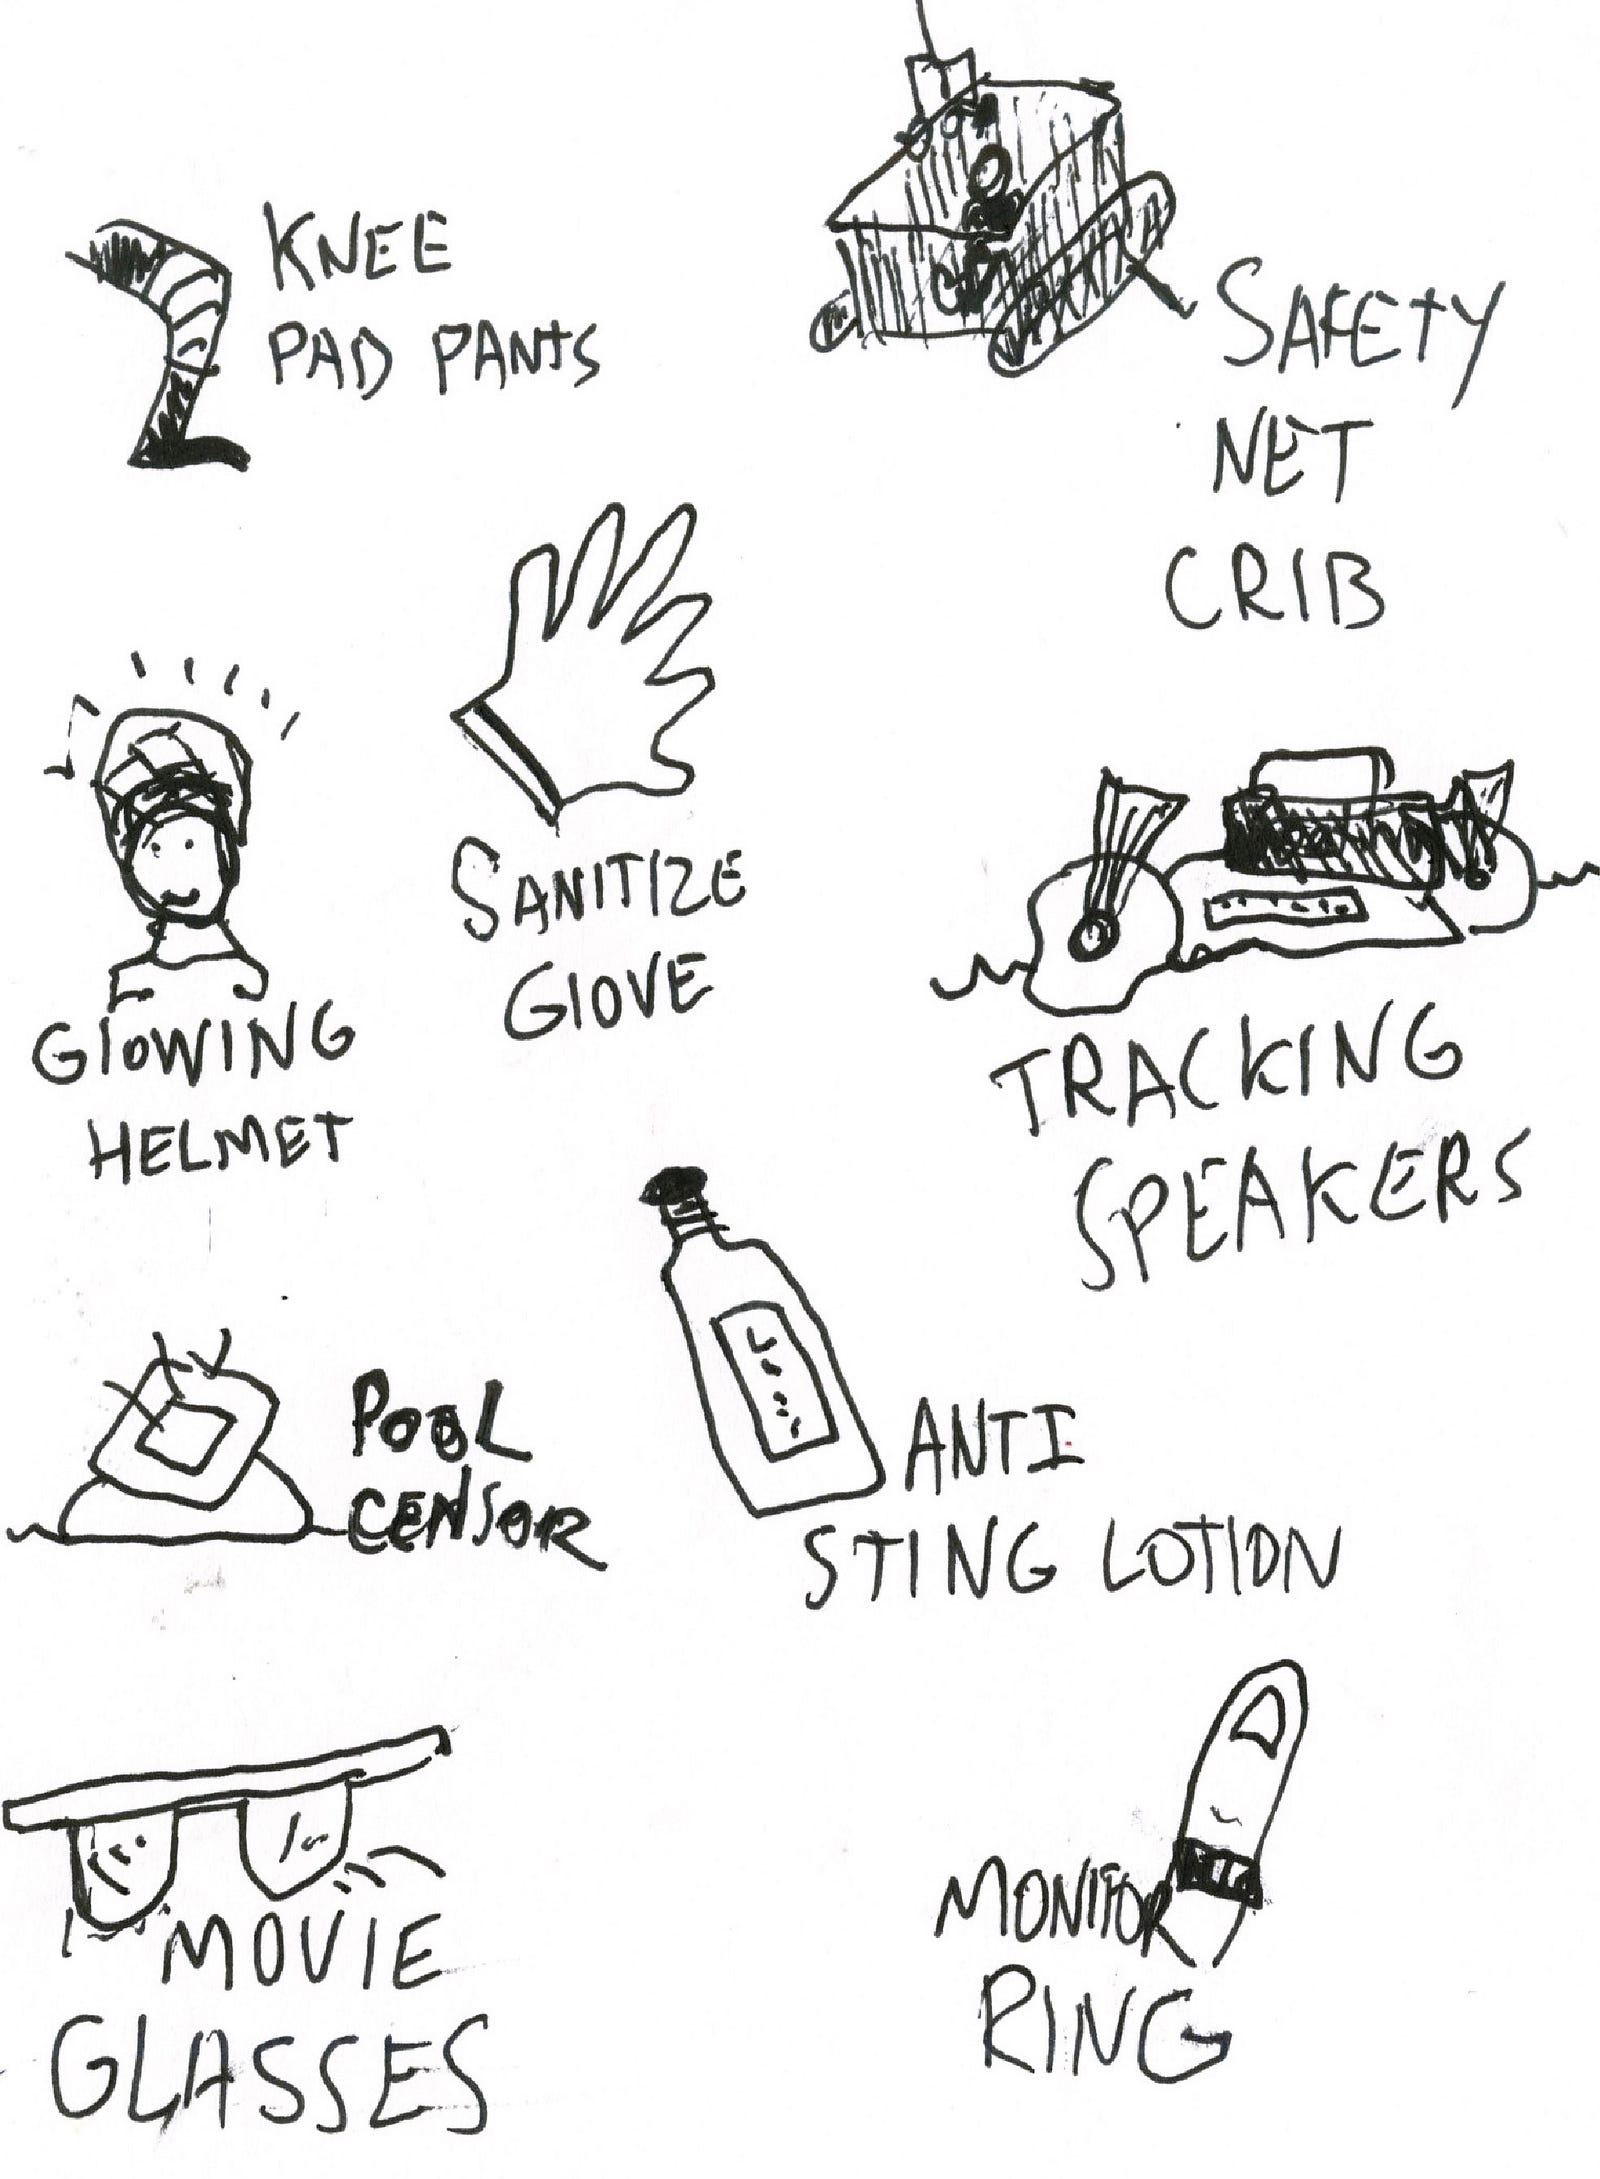 KNEE
PAD PANTS
SAFETY
NET
CRIB
SANITIZE
GlOVE
GlOWING
HELMET
TRACKING
SPEAKERS
POOL
CENSOR
ANTI
STING LOTION
MOVIE
GLASSES
MONITOR
RING